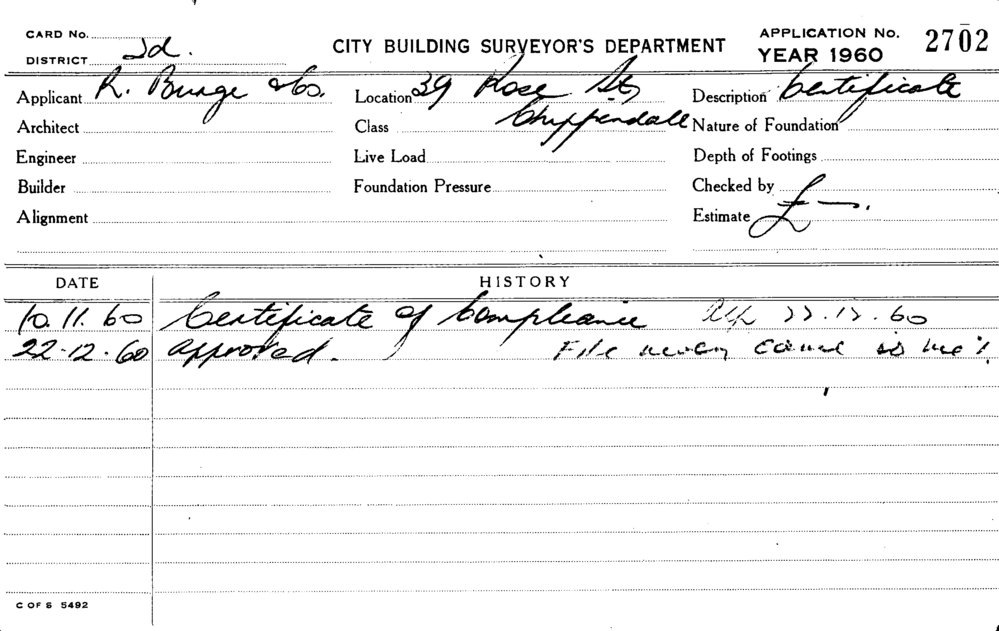 CARD No.
DISTRICT 2d.
CITY BUILDING SURVEYOR'S DEPARTMENT
APPLICATION No. 2702
YEAR 1960
Applicant R. Burge & Co. Location 39 Rose St, Description Certificate
Architect Class Chippendale Nature of Foundation
Engineer Live Load Depth of Footings
Builder Foundation Pressure Checked by
Alignment Estimate £ —.
DATE HISTORY
10.11.60 Certificate of Compliance 22.12.60
22.12.60 approved. File never came to me
C OF S 5492